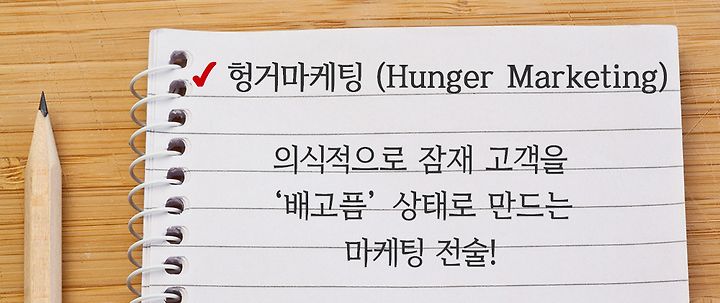 헝거마케팅 (Hunger Marketing)
의식적으로 잠재 고객을
‘배고픔’ 상태로 만드는
마케팅 전술!